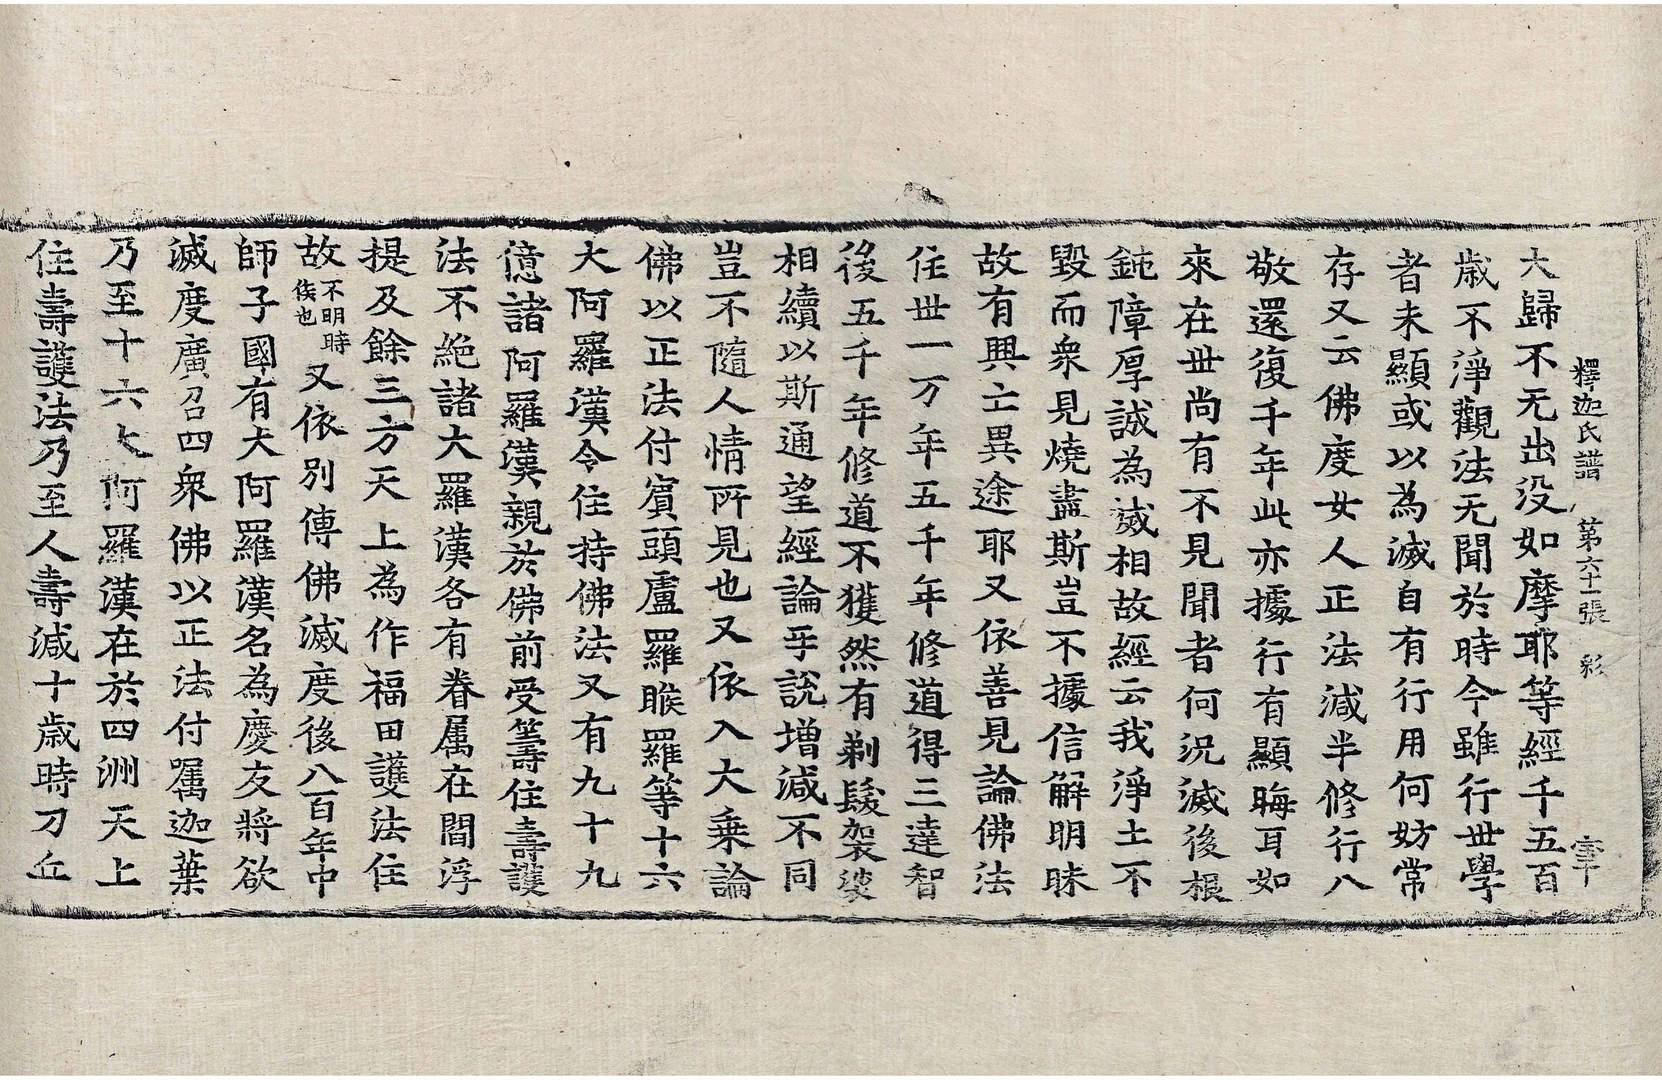 釋迦氏譜 第六十一張 彩 宰
大歸不无出没如摩耶等經千五百
歲不淨觀法无聞於時今雖行世學
者未顯或以為滅自有行用何妨常
存又云佛度女人正法減半修行八
敬還復千年此亦據行有顯晦耳如
來在世尚有不見聞者何況滅後根
鈍障厚誠為滅相故經云我淨土不
毀而衆見燒盡斯豈不據信解明昧
故有興亡異途耶又依善見論佛法
住世一万年五千年修道得三達智
後五千年修道不獲然有剃髮袈裟
相續以斯通望經論乎說增減不同
豈不隨人情所見也又依入大乗論
佛以正法付賓頭盧羅睺羅等十六
大阿羅漢令住持佛法又有九十九
億諸阿羅漢親於佛前受籌住壽護
法不絶諸大羅漢各有眷属在閻浮
提及餘三方天上為作福田護法住
故不明時俟也又依別傳佛滅度後八百年中
師子國有大阿羅漢名為慶友將欲
滅度廣召四衆佛以正法付囑迦葉
乃至十六大阿羅漢在於四洲天上
住壽護法乃至人壽減十歲時刀兵